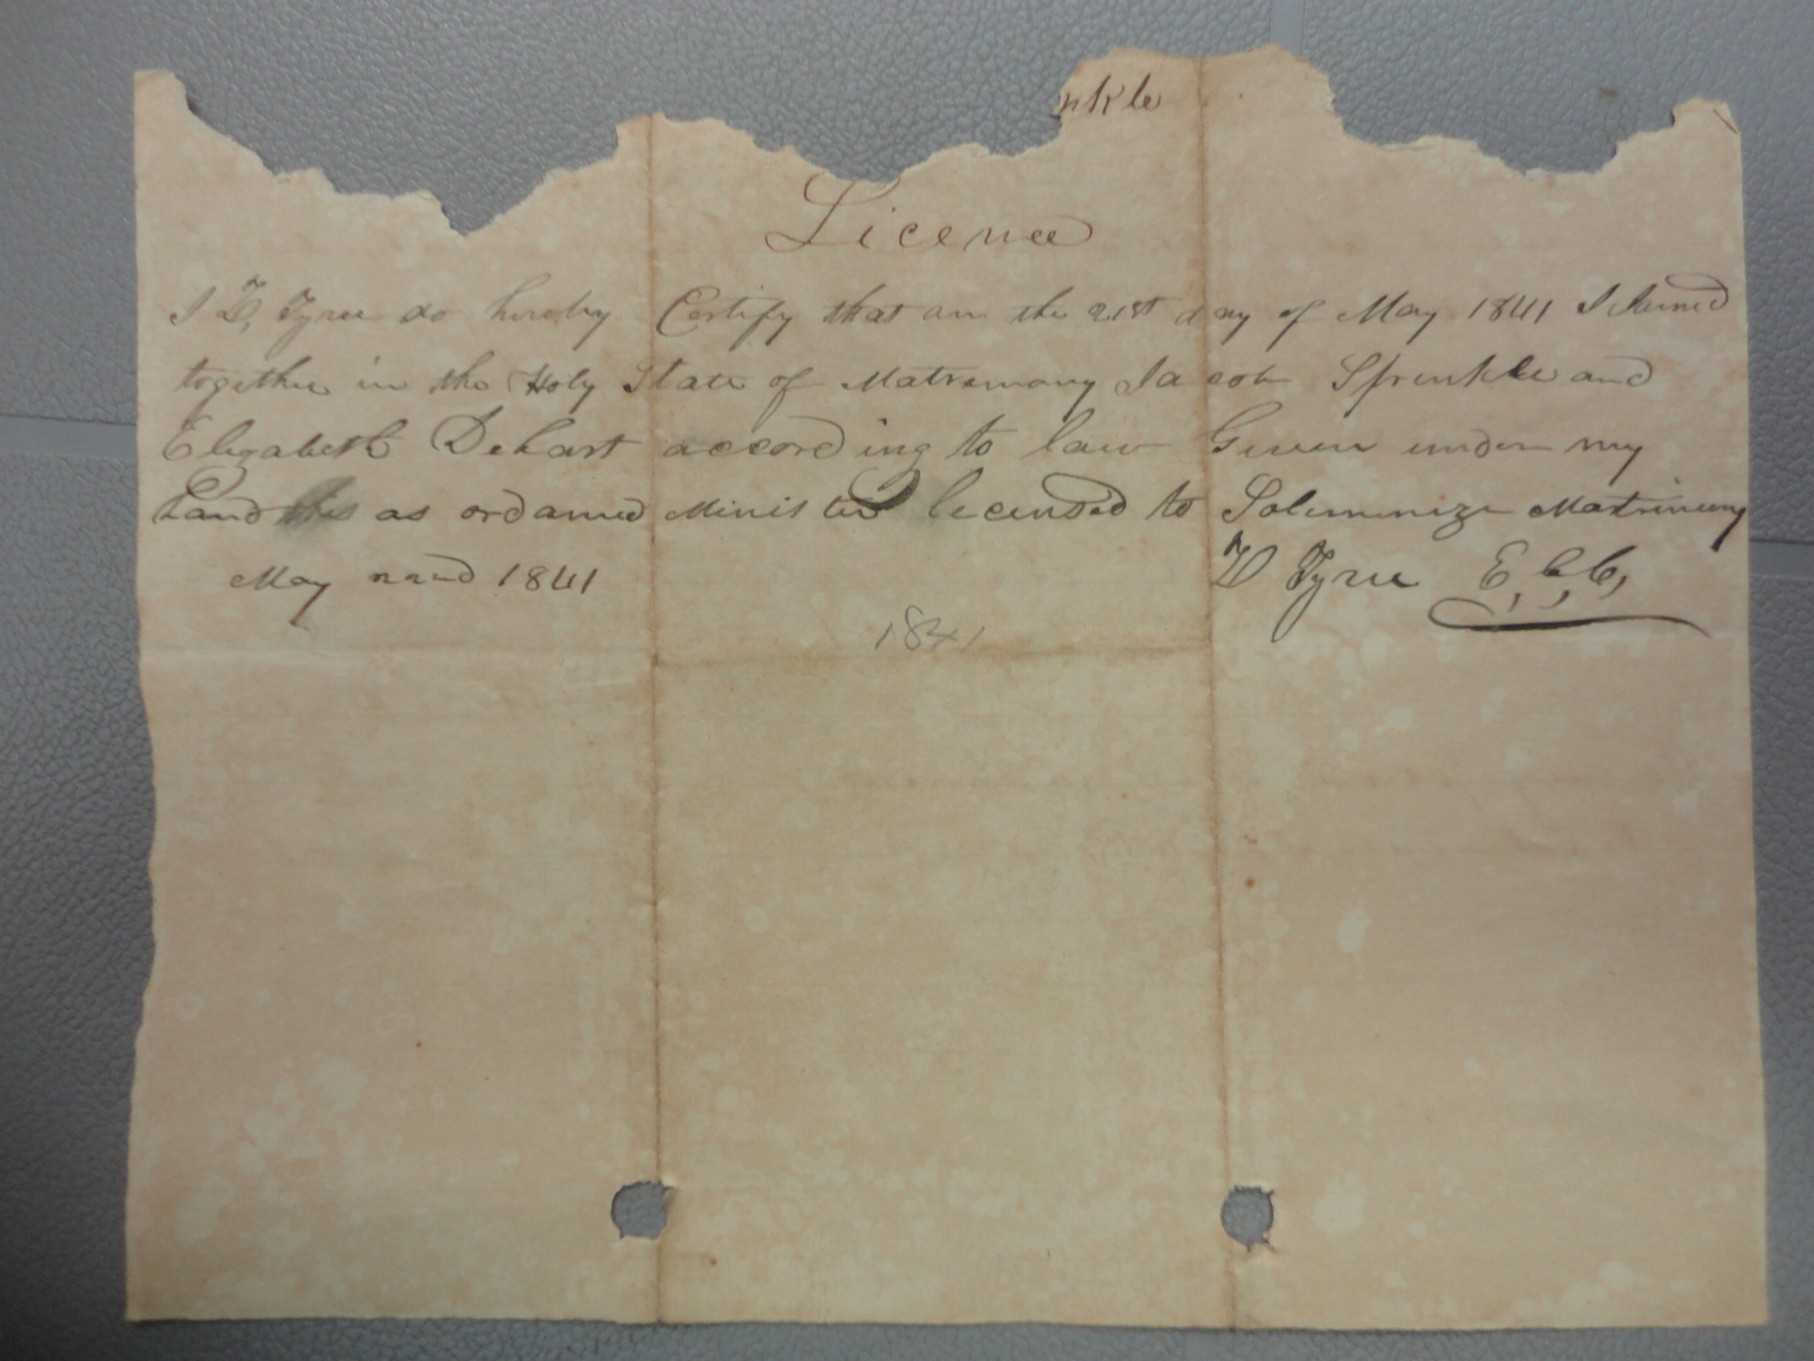 nkle
Licence
I D, Tyree do hereby Certify that on the 21st day of May 1841 I Joined
together in the Holy State of Matremony Jacob Sprinkle and
Elizabeth Dehart according to law Given under my
hand this as ordained Minister licensed to Solemnize Matrimony
May 22nd 1841
D Tyree E,
1841